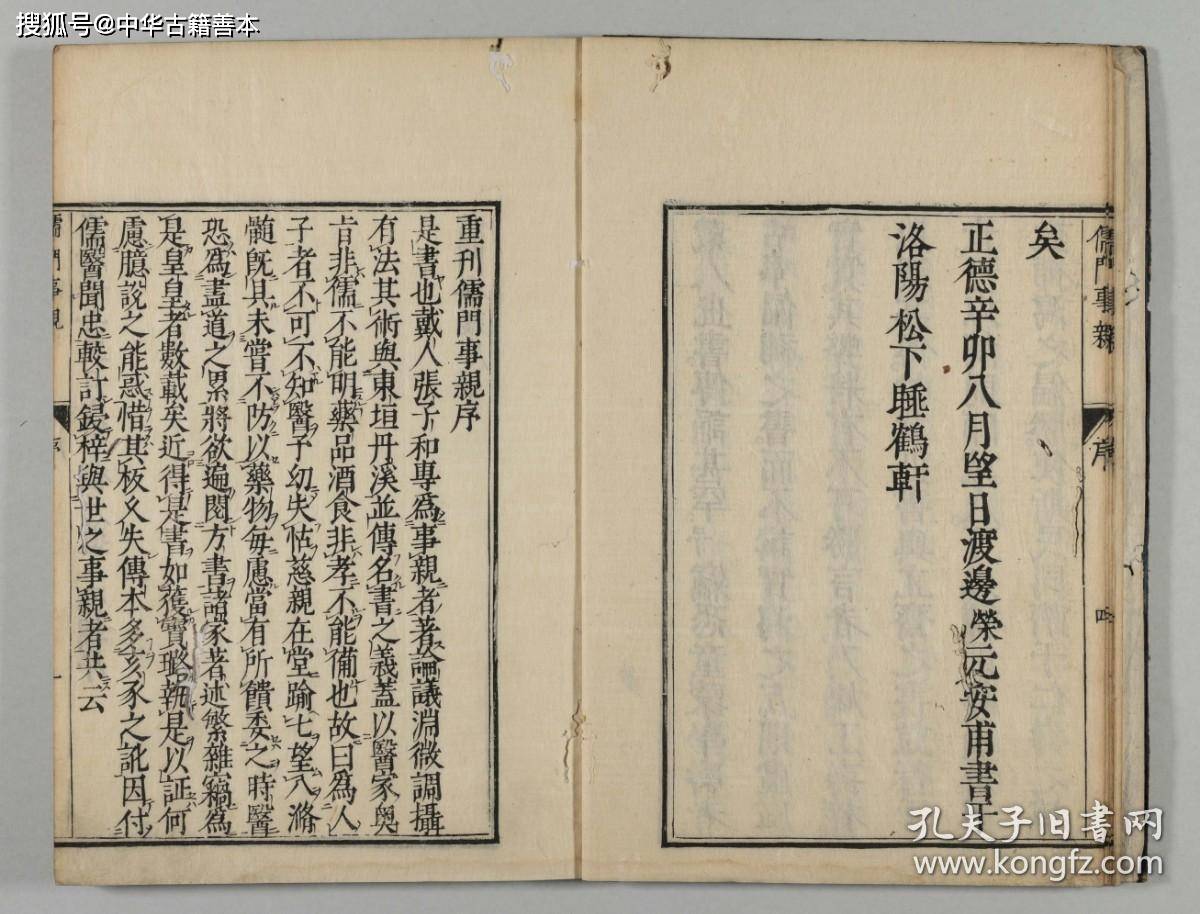 搜狐号@中华古籍善本
儒門事親 序 四
矣
正德辛卯八月望日渡邊榮元安甫書于
洛陽松下睡鶴軒
重刊儒門事親序
是書也戴人張子和專為事親者著論議淵微調攝
有法其術與東垣丹溪並傳名書之義蓋以醫家奧
旨非儒不能明藥品酒食非孝不能備也故曰為人
子者不可不知醫予幼失怙慈親在堂踰七望八滫
髓既具未嘗不防以藥物每慮當有所饋委之時醫
恐為盡道之累將欲遍閱方書諸家著述繁雜竊為
是皇皇者數載矣近得是書如獲寶璐執是以証何
慮臆說之能惑惜其板久失傳本多亥豕之訛因付
儒醫聞忠較訂鋟梓與世之事親者共云
儒門事親 序 一
孔夫子旧书网
www.kongfz.com